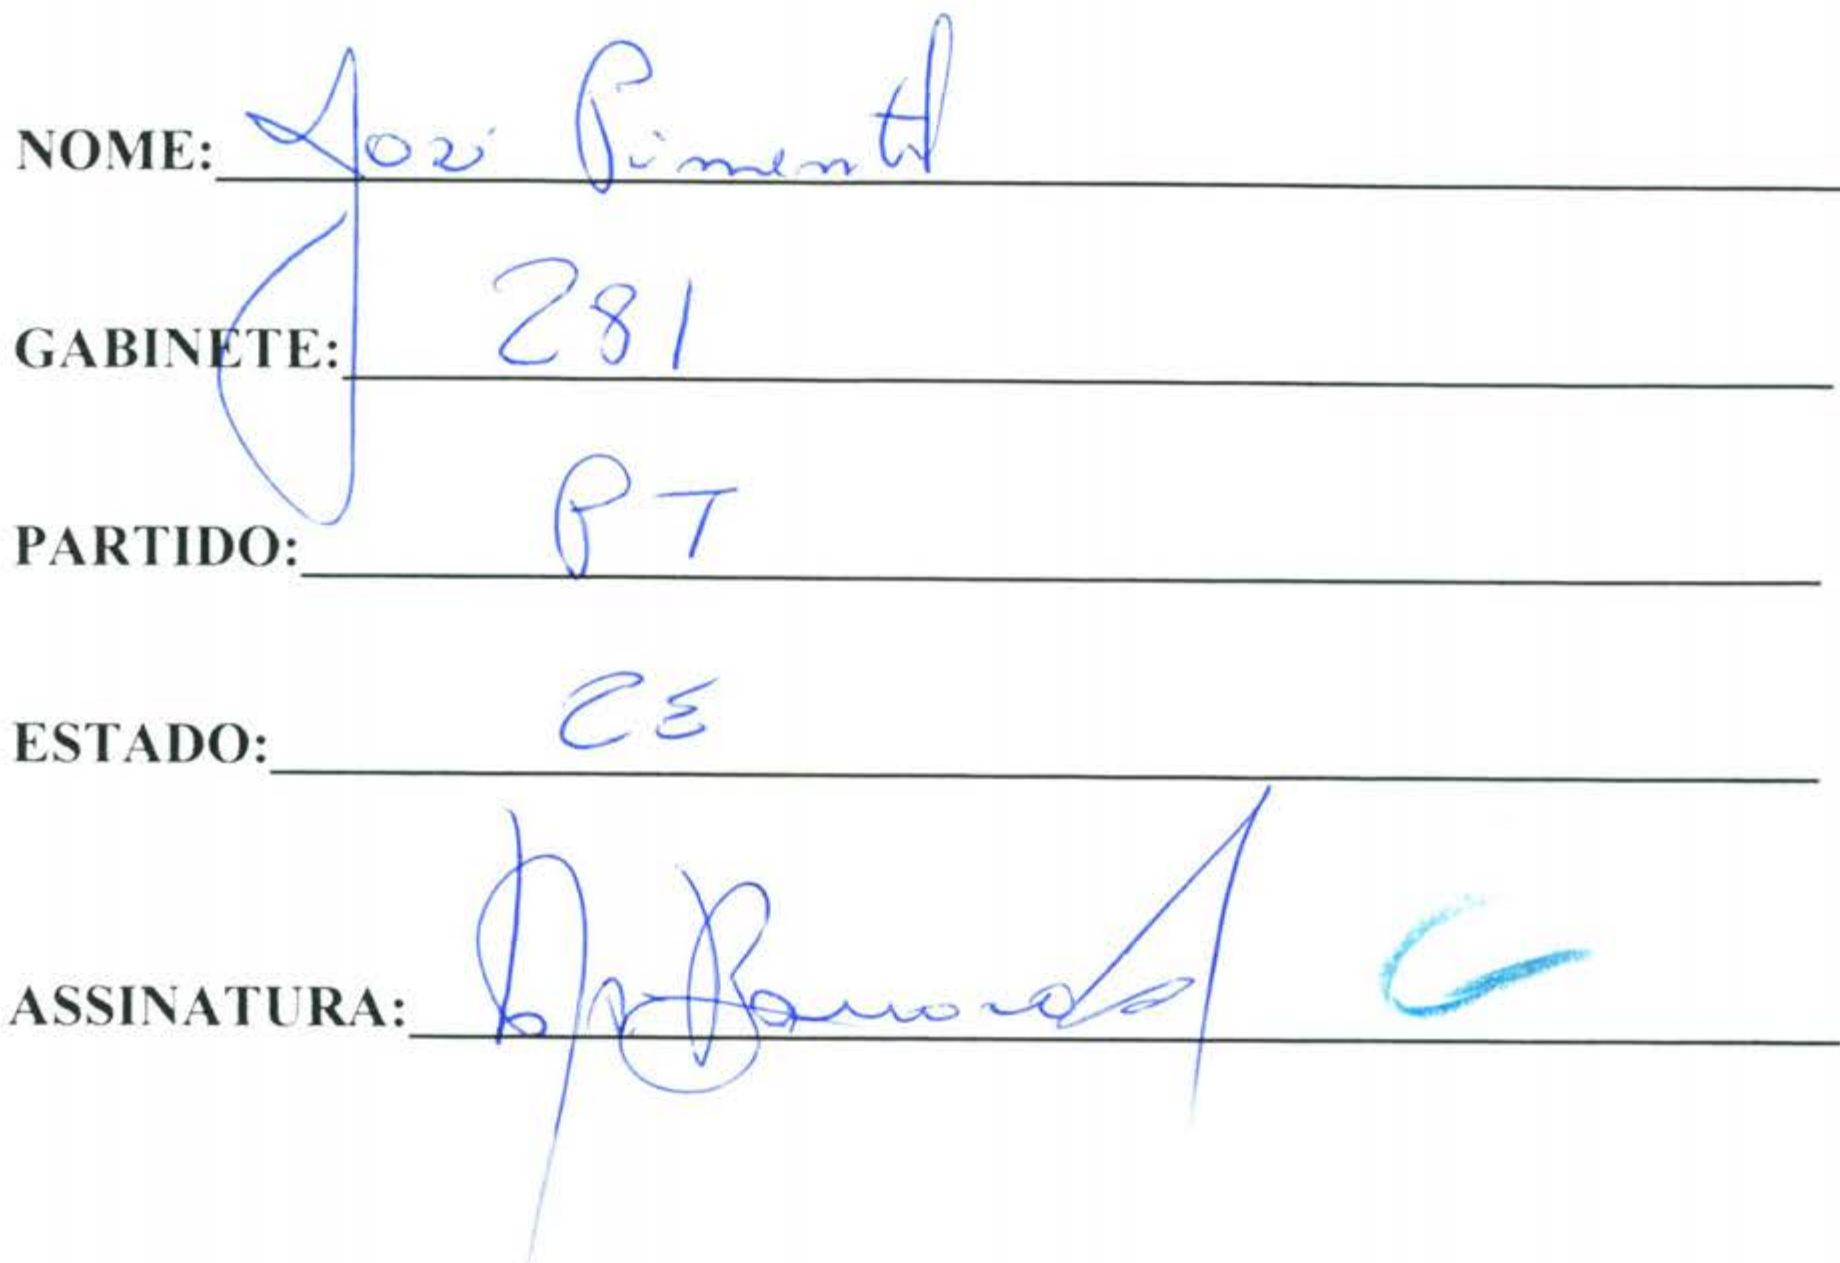 NOME: José Pimentel
GABINETE: 281
PARTIDO: PT
ESTADO: CE
ASSINATURA: